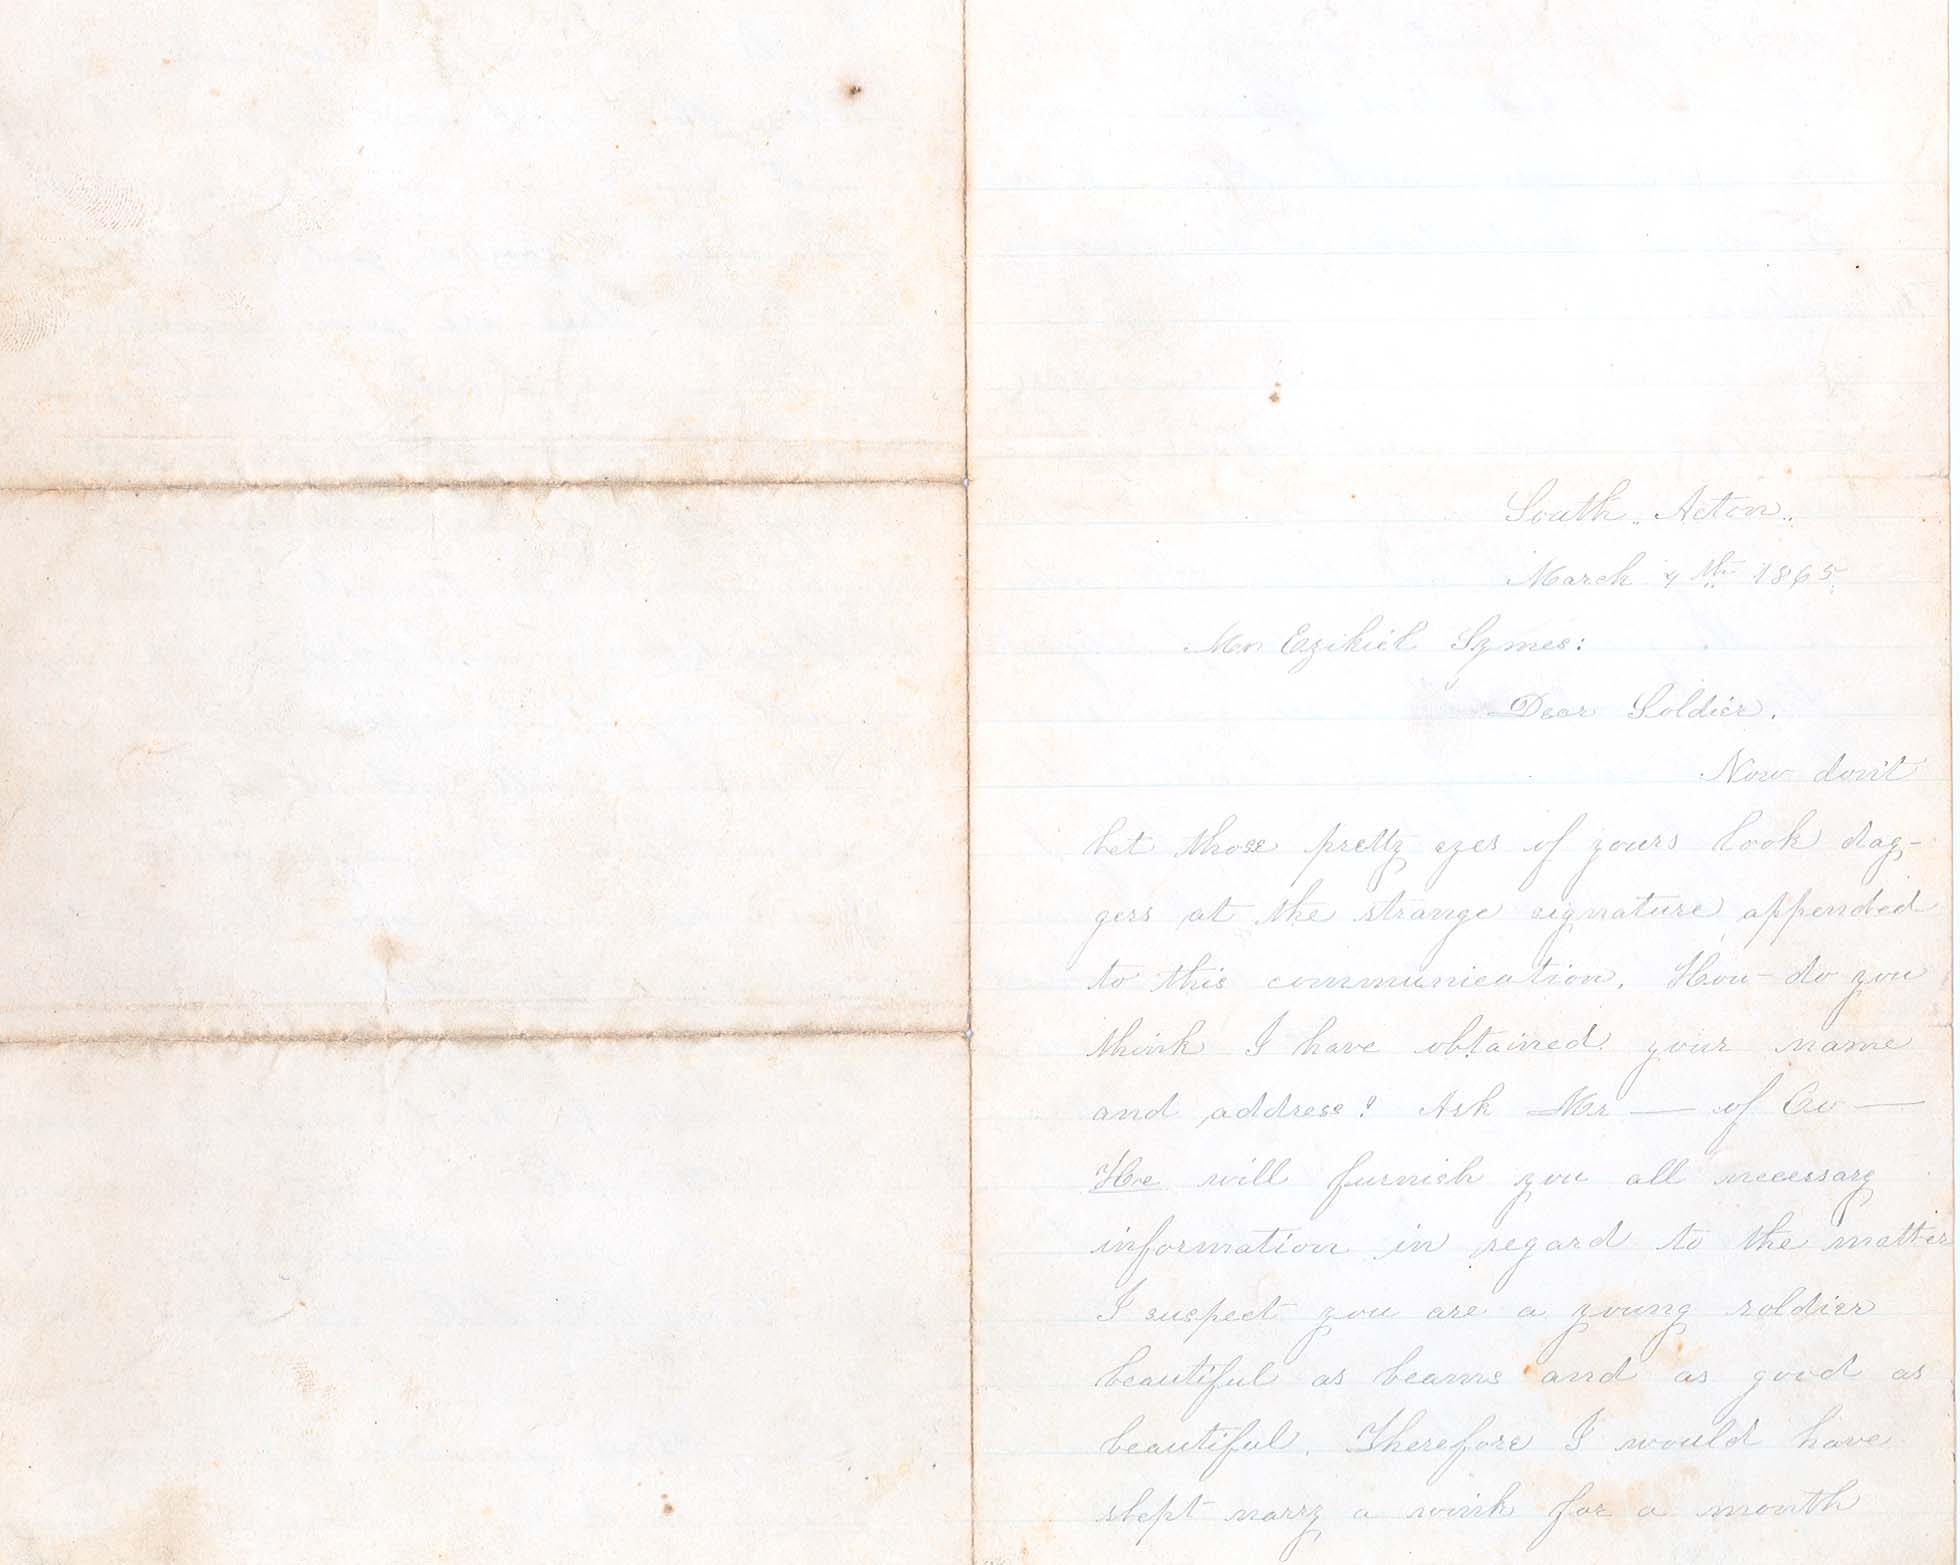 South Acton
March 7th 1865
Mr Ezikiel Symes:
Dear Soldier.
Now don't
let those pretty eyes of yours look dag-
gers at the strange signature appended
to this communication. How do you
think I have obtained your name
and address? Ask Mr — of Co —
He will furnish you all necessary
information in regard to the matter
I suspect you are a young soldier
beautiful as beams and as good as
beautiful. Therefore I would have
slept narry a wink for a month